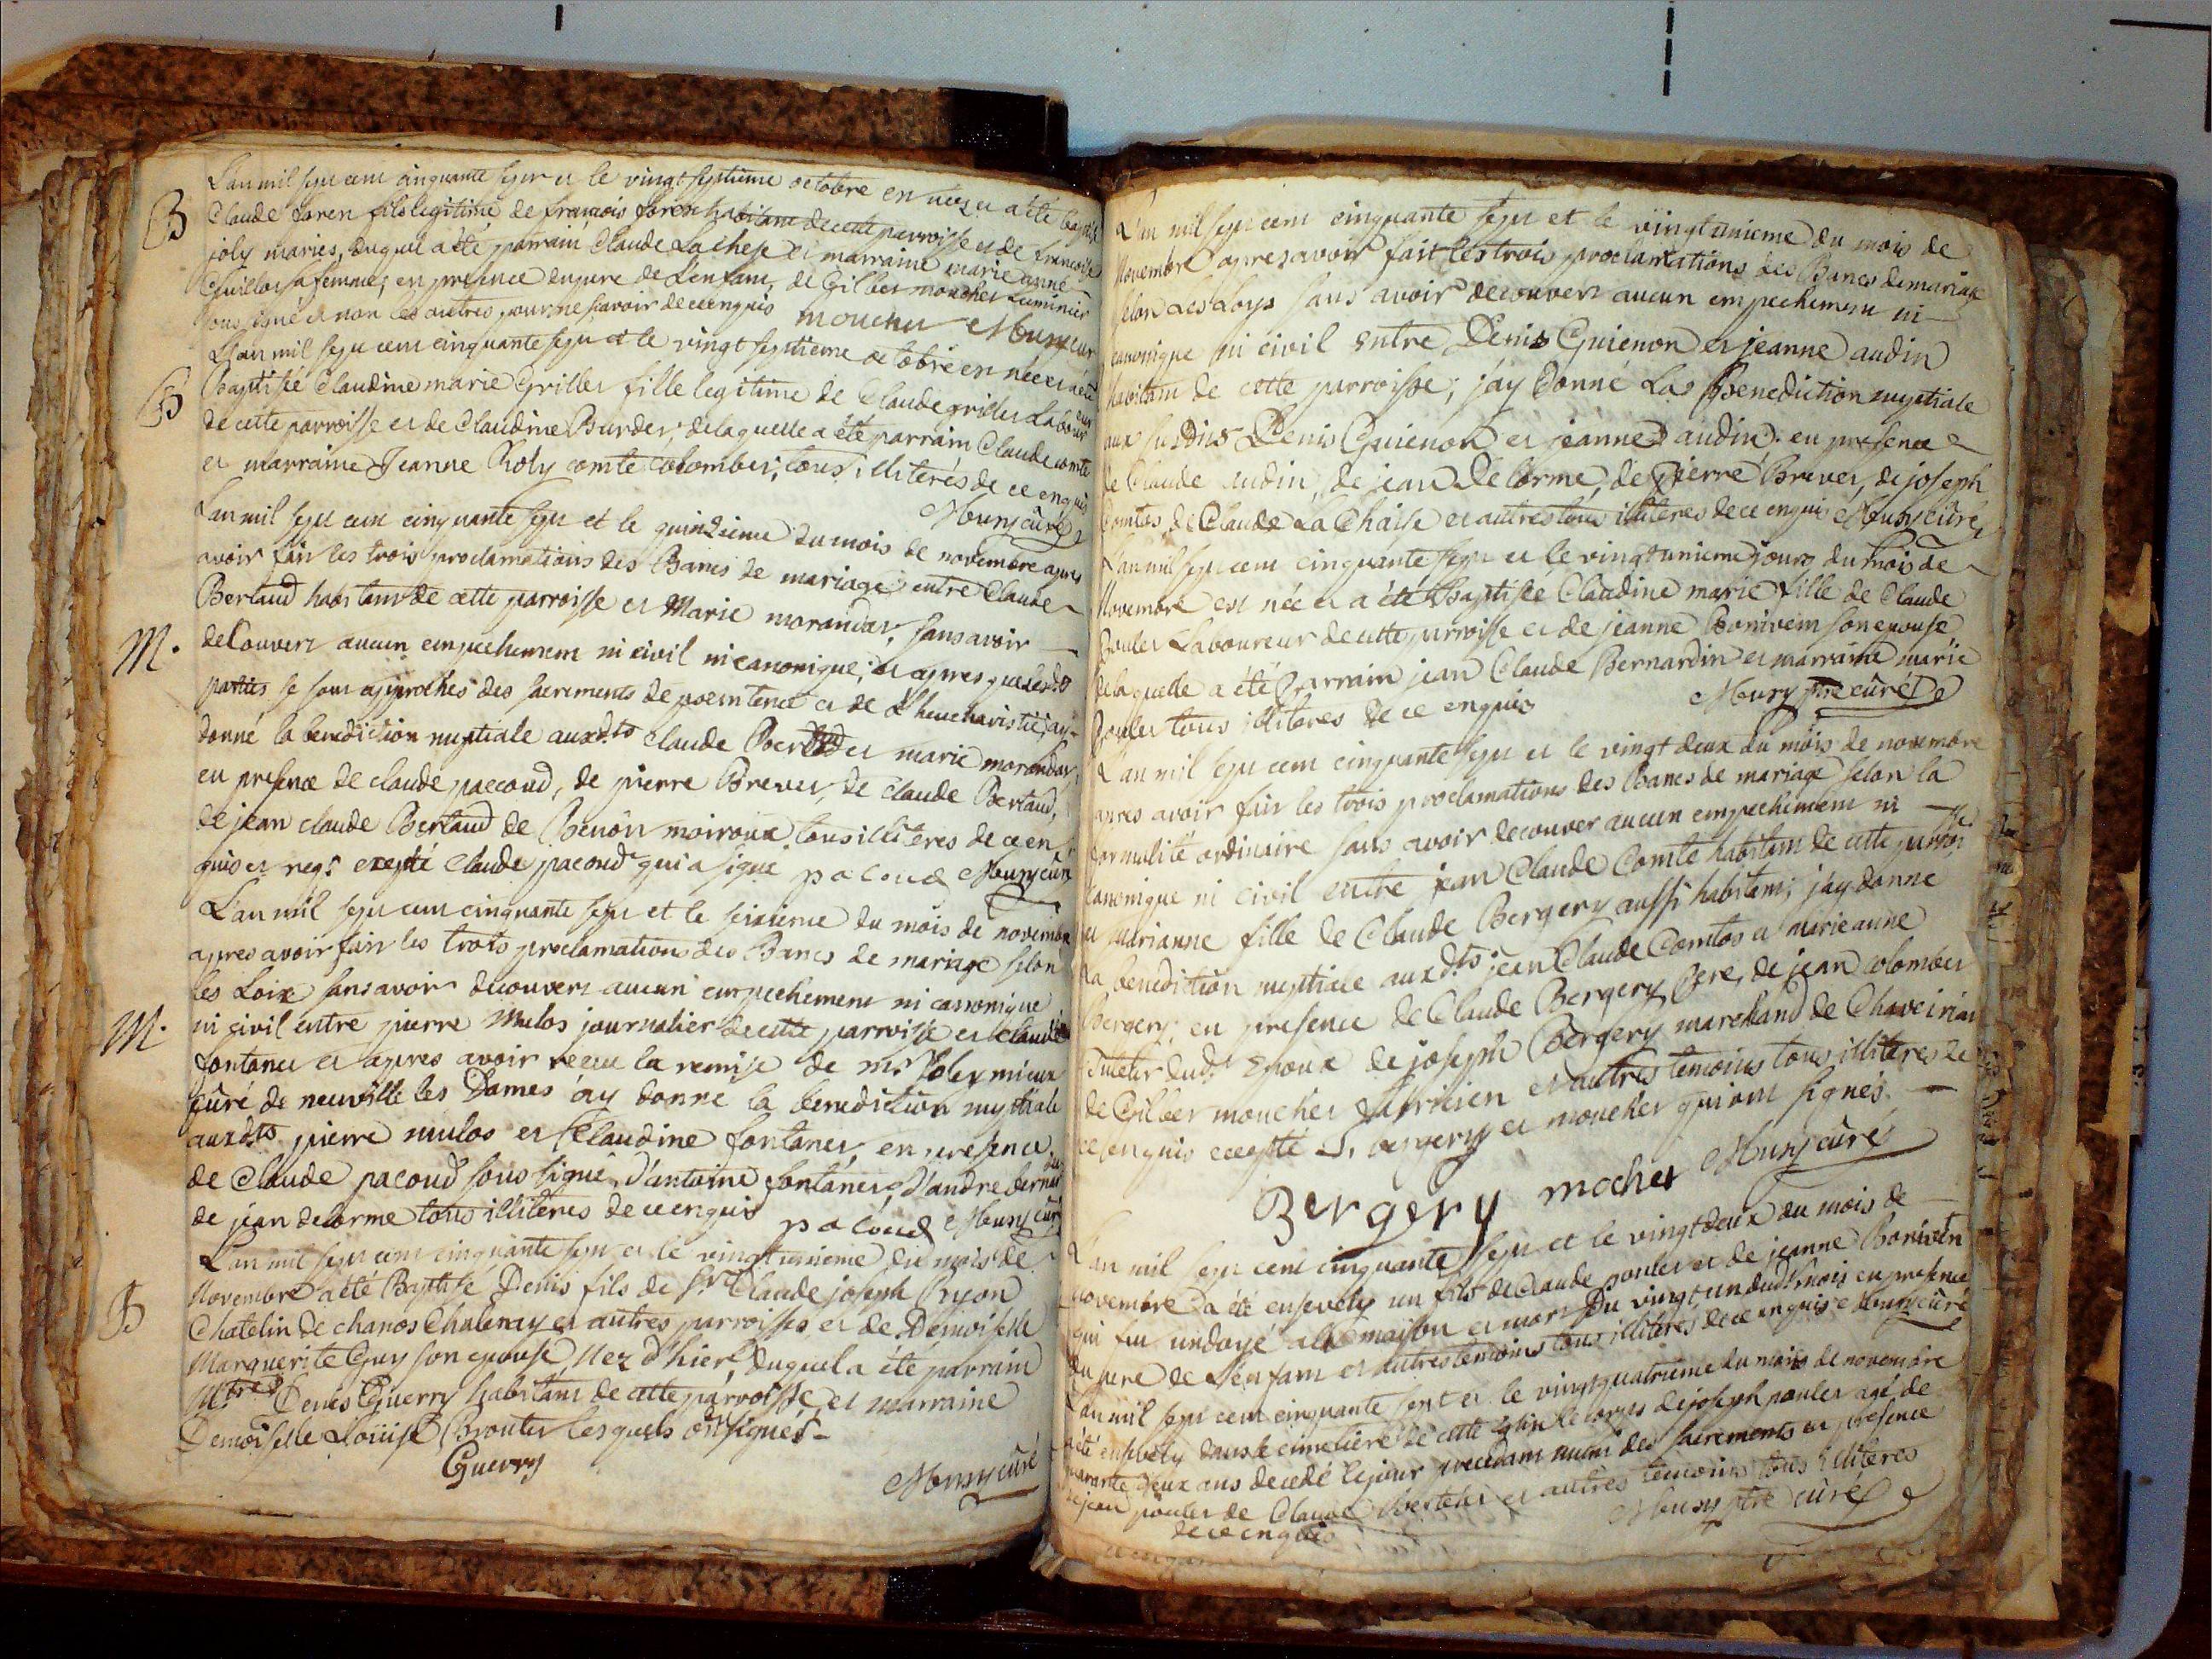 L'an mil sept cent cinquante sept et le vingt septieme octobre en nee et a été baptisé
B
Claude foren fils legitime de francois foren habitant de cette parroisse et de francoise
joly mariés, duquel a été parrain Claude Lachese et marraine marie anne
Guillot sa femme; en presence du pere de L'enfant, de Gilbert moucher Luminier
sous signé et non les autres pour ne savoir de ce enquis moucher Muny cur
L'an mil sept cent cinquante sept et le vingt septieme octobre en née et a été
B
Baptisée Claudine marie Grillet fille legitime de Claude grillet Laboureur
de cette parroisse et de Claudine Burdet; de laquelle a été parrain Claude comte
et marraine Jeanne Roly comte colombet; tous illiterés de ce enquis
Muny curé
L'an mil sept cent cinquante sept et le quinzieme du mois de novembre apres
avoir fait les trois proclamations des Bancs de mariage entre Claude
Bertaud habitant de cette parroisse et Marie morandat, sans avoir
M.
decouvert aucun empechement ni civil ni canonique; et apres que lesdts
parties se sont approchés des sacrements de poenitence et de L'heucharistie, ay
donné la benediction nuptiale auxdts claude Bertaud et marie morandat,
en presence de claude paccoud, de pierre Brevet, de claude Bertaud,
de jean claude Bertaud de Benoin moiroux tous illiteres de ce en
quis et reqs excepté Claude pacoud qui a signé pacoud Muny curé
L'an mil sept cent cinquante sept et le seizieme du mois de novembre
apres avoir fait les trois proclamations des Bancs de mariage selon
les Loix sans avoir decouvert aucun empechement ni canonique
M.
ni civil entre pierre Mulos journalier de cette parroisse et Claudine
fontanet et apres avoir reçu la remise de mr Joly mieux
curé de neuville les Dames ay donné la benediction nuptiale
auxdts pierre mulos et Claudine fontanet, en presence
de Claude pacoud sous signé, d'antoine fontanet, d'andre
de jean delorme tous illiteres de ce enquis pacoud Muny curé
L'an mil sept cent cinquante sept et le vingt unieme du mois de
B
Novembre a été Baptisé Denis fils de sr Claude joseph Ryon
Chatelin de chanos Chatenay et autres parroisses et de Demoiselle
Marguerite Guy son epouse, Nez d'hier, duquel a été parrain
Denis Guerry habitant de cette parroisse, et marraine
Demoiselle Loüise Broutet lesquels ont signés
Guerry
Muny curé
L'an mil sept cent cinquante sept et le vingt unieme du mois de
Novembre apres avoir fait les trois proclamations des Bancs de mariage
selon Les Loys sans avoir decouvert aucun empechement ni
canonique ni civil entre Denis Guienon et jeanne audin
habitant de cette parroisse; j'ay donné La Benediction nuptiale
aux susdits Denis Guienon et jeanne audin. en presence
de Claude audin, de jean De lorme, de Pierre Brevet, de joseph
Comtes, de Claude La Chaise et autres tous illiteres de ce enquis Muny curé
L'an mil sept cent cinquante sept et le vingt unieme jours du mois de
Novembre est née et a été Baptisée Claudine marie fille de Claude
Poulet Laboureur de cette parroisse et de jeanne Bonivent son epouse,
de laquelle a été Parrain jean Claude Bernardin et marraine marie
Poulet tous illiteres de ce enquis Muny ptre curé
L'an mil sept cent cinquante sept et le vingt deux du mois de novembre
apres avoir fait les trois proclamations des Bancs de mariage selon la
formalité ordinaire sans avoir decouvert aucun empechement ni
Canonique ni civil entre jean Claude Comte habitant de cette parroi
et Marianne fille de Claude Bergery aussi habitant; j'ay donne
La benediction nuptiale auxdts jean Claude Comtes et marie anne
Bergery; en presence de Claude Bergery Pere, de jean colombet
Tuteur dudt Epoux de joseph Bergery marchand de Chaveiriat
de Gilbert moucher et autres temoins tous illiteres de
ce enquis excepté Bergery et moucher qui ont signés.
Bergery mocher Muny curé
L'an mil sept cent cinquante sept et le vingt deux du mois de
novembre a été ensevely un fils de Claude poulet et de jeanne Bonivent
qui fut undoyé a la maison et mort du vingt un dudt mois en presence
du pere de L'enfant et autres temoins tous illiteres de ce enquis Muny curé
L'an mil sept cent cinquante sept et le vingt quatrieme du mois de novembre
a été ensevely dans le cimetiere de cette Eglise le corps de joseph poulet agé de
quarante deux ans decedé le jour precedant muni des sacrements en presence
de jean poulet de Claude et autres temoins tous illiteres
de ce enquis Muny ptre curé